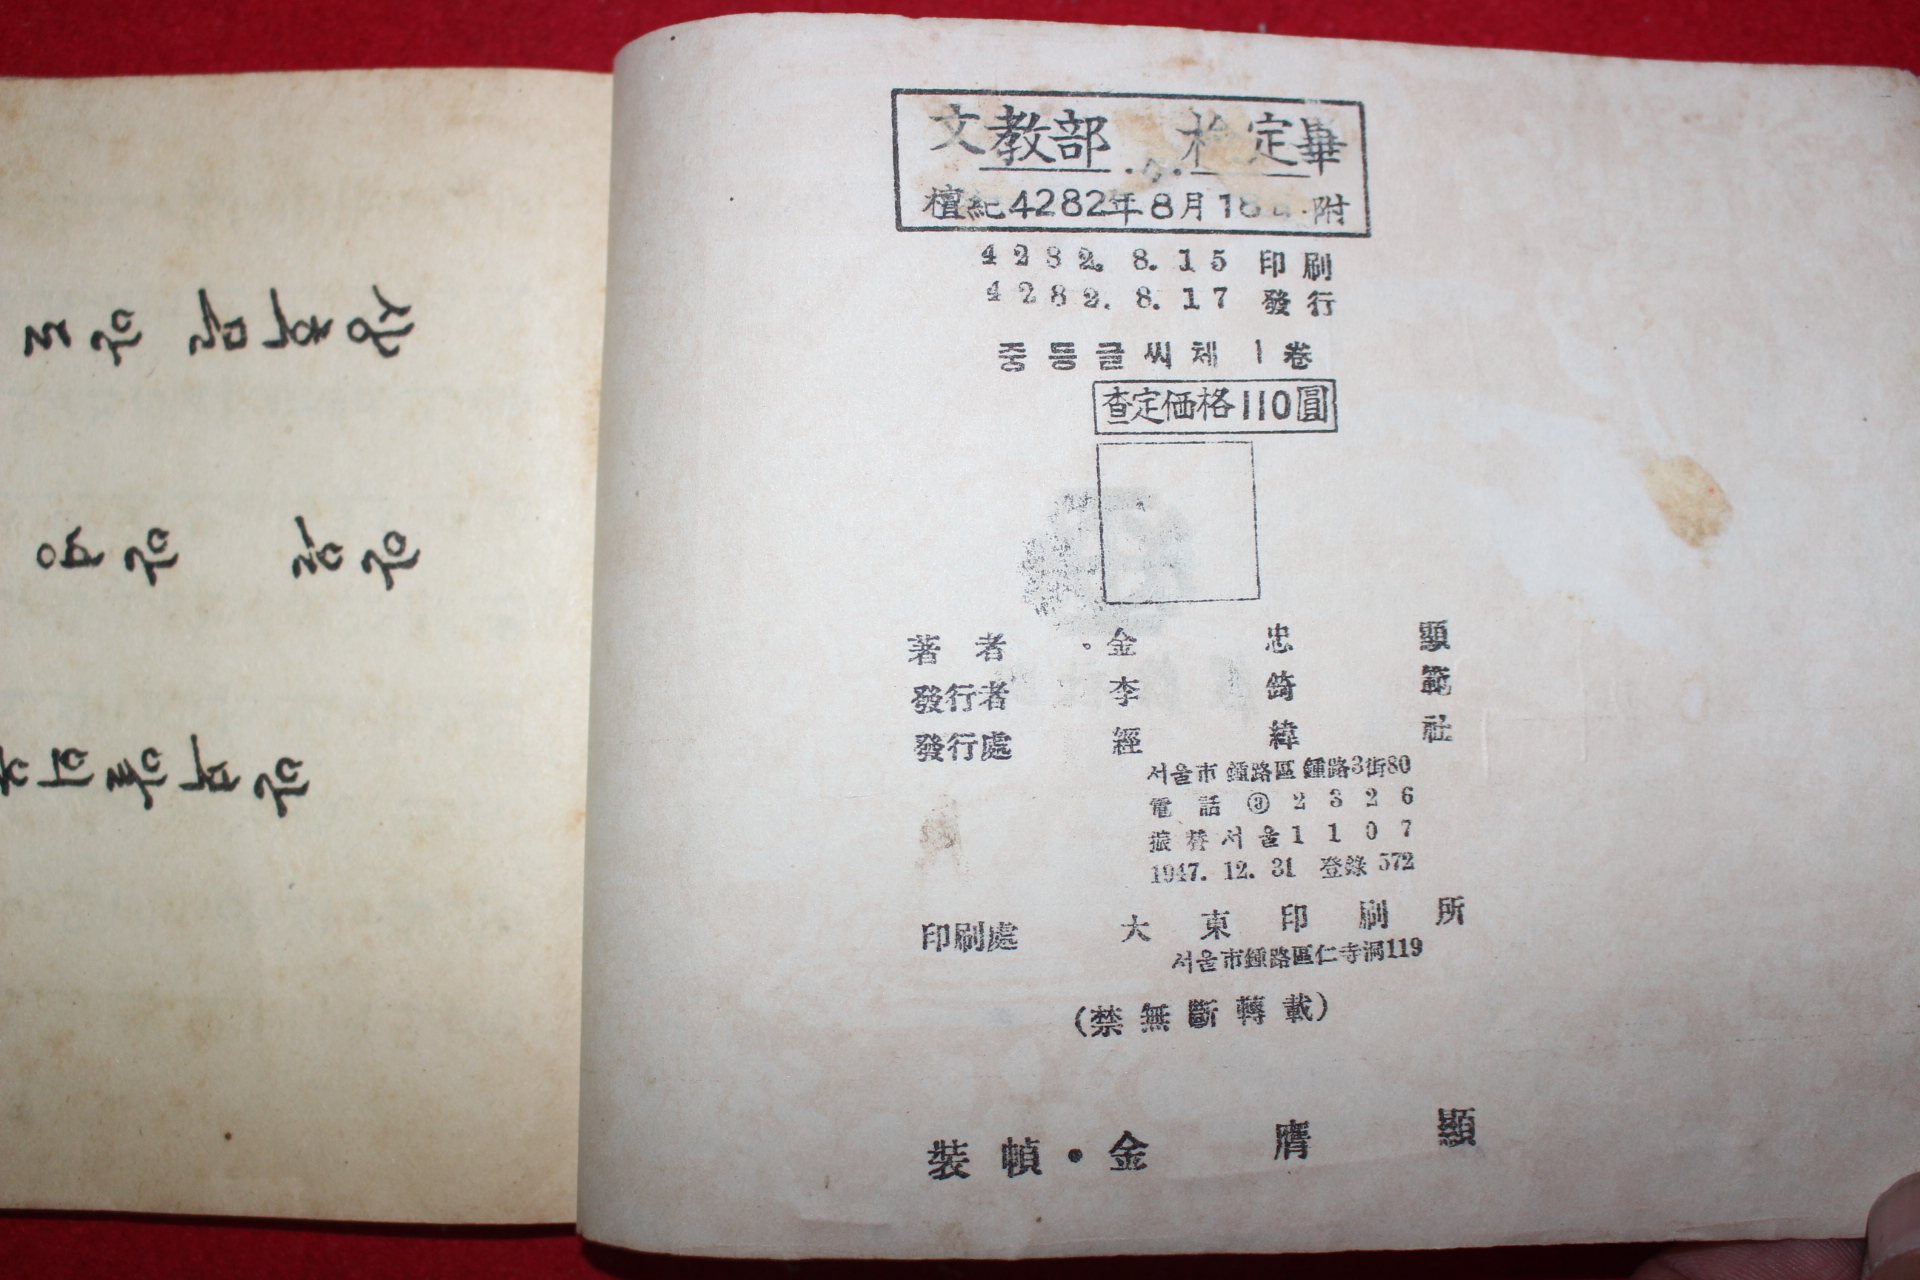 文教部 檢定畢
檀紀4282年8月18日附
4282. 8. 15 印刷
4282. 8. 17 發行
중등글씨체 1卷
査定価格110圓
著者・金忠顯
發行者 李錡範
發行處 經緯社
서울市 鍾路區 鍾路3街80
電話 ③ 2326
振替서울1107
1947. 12. 31 登錄 572
印刷處 大東印刷所
서울市鍾路區仁寺洞119
(禁無斷轉載)
裝幀・金膺顯